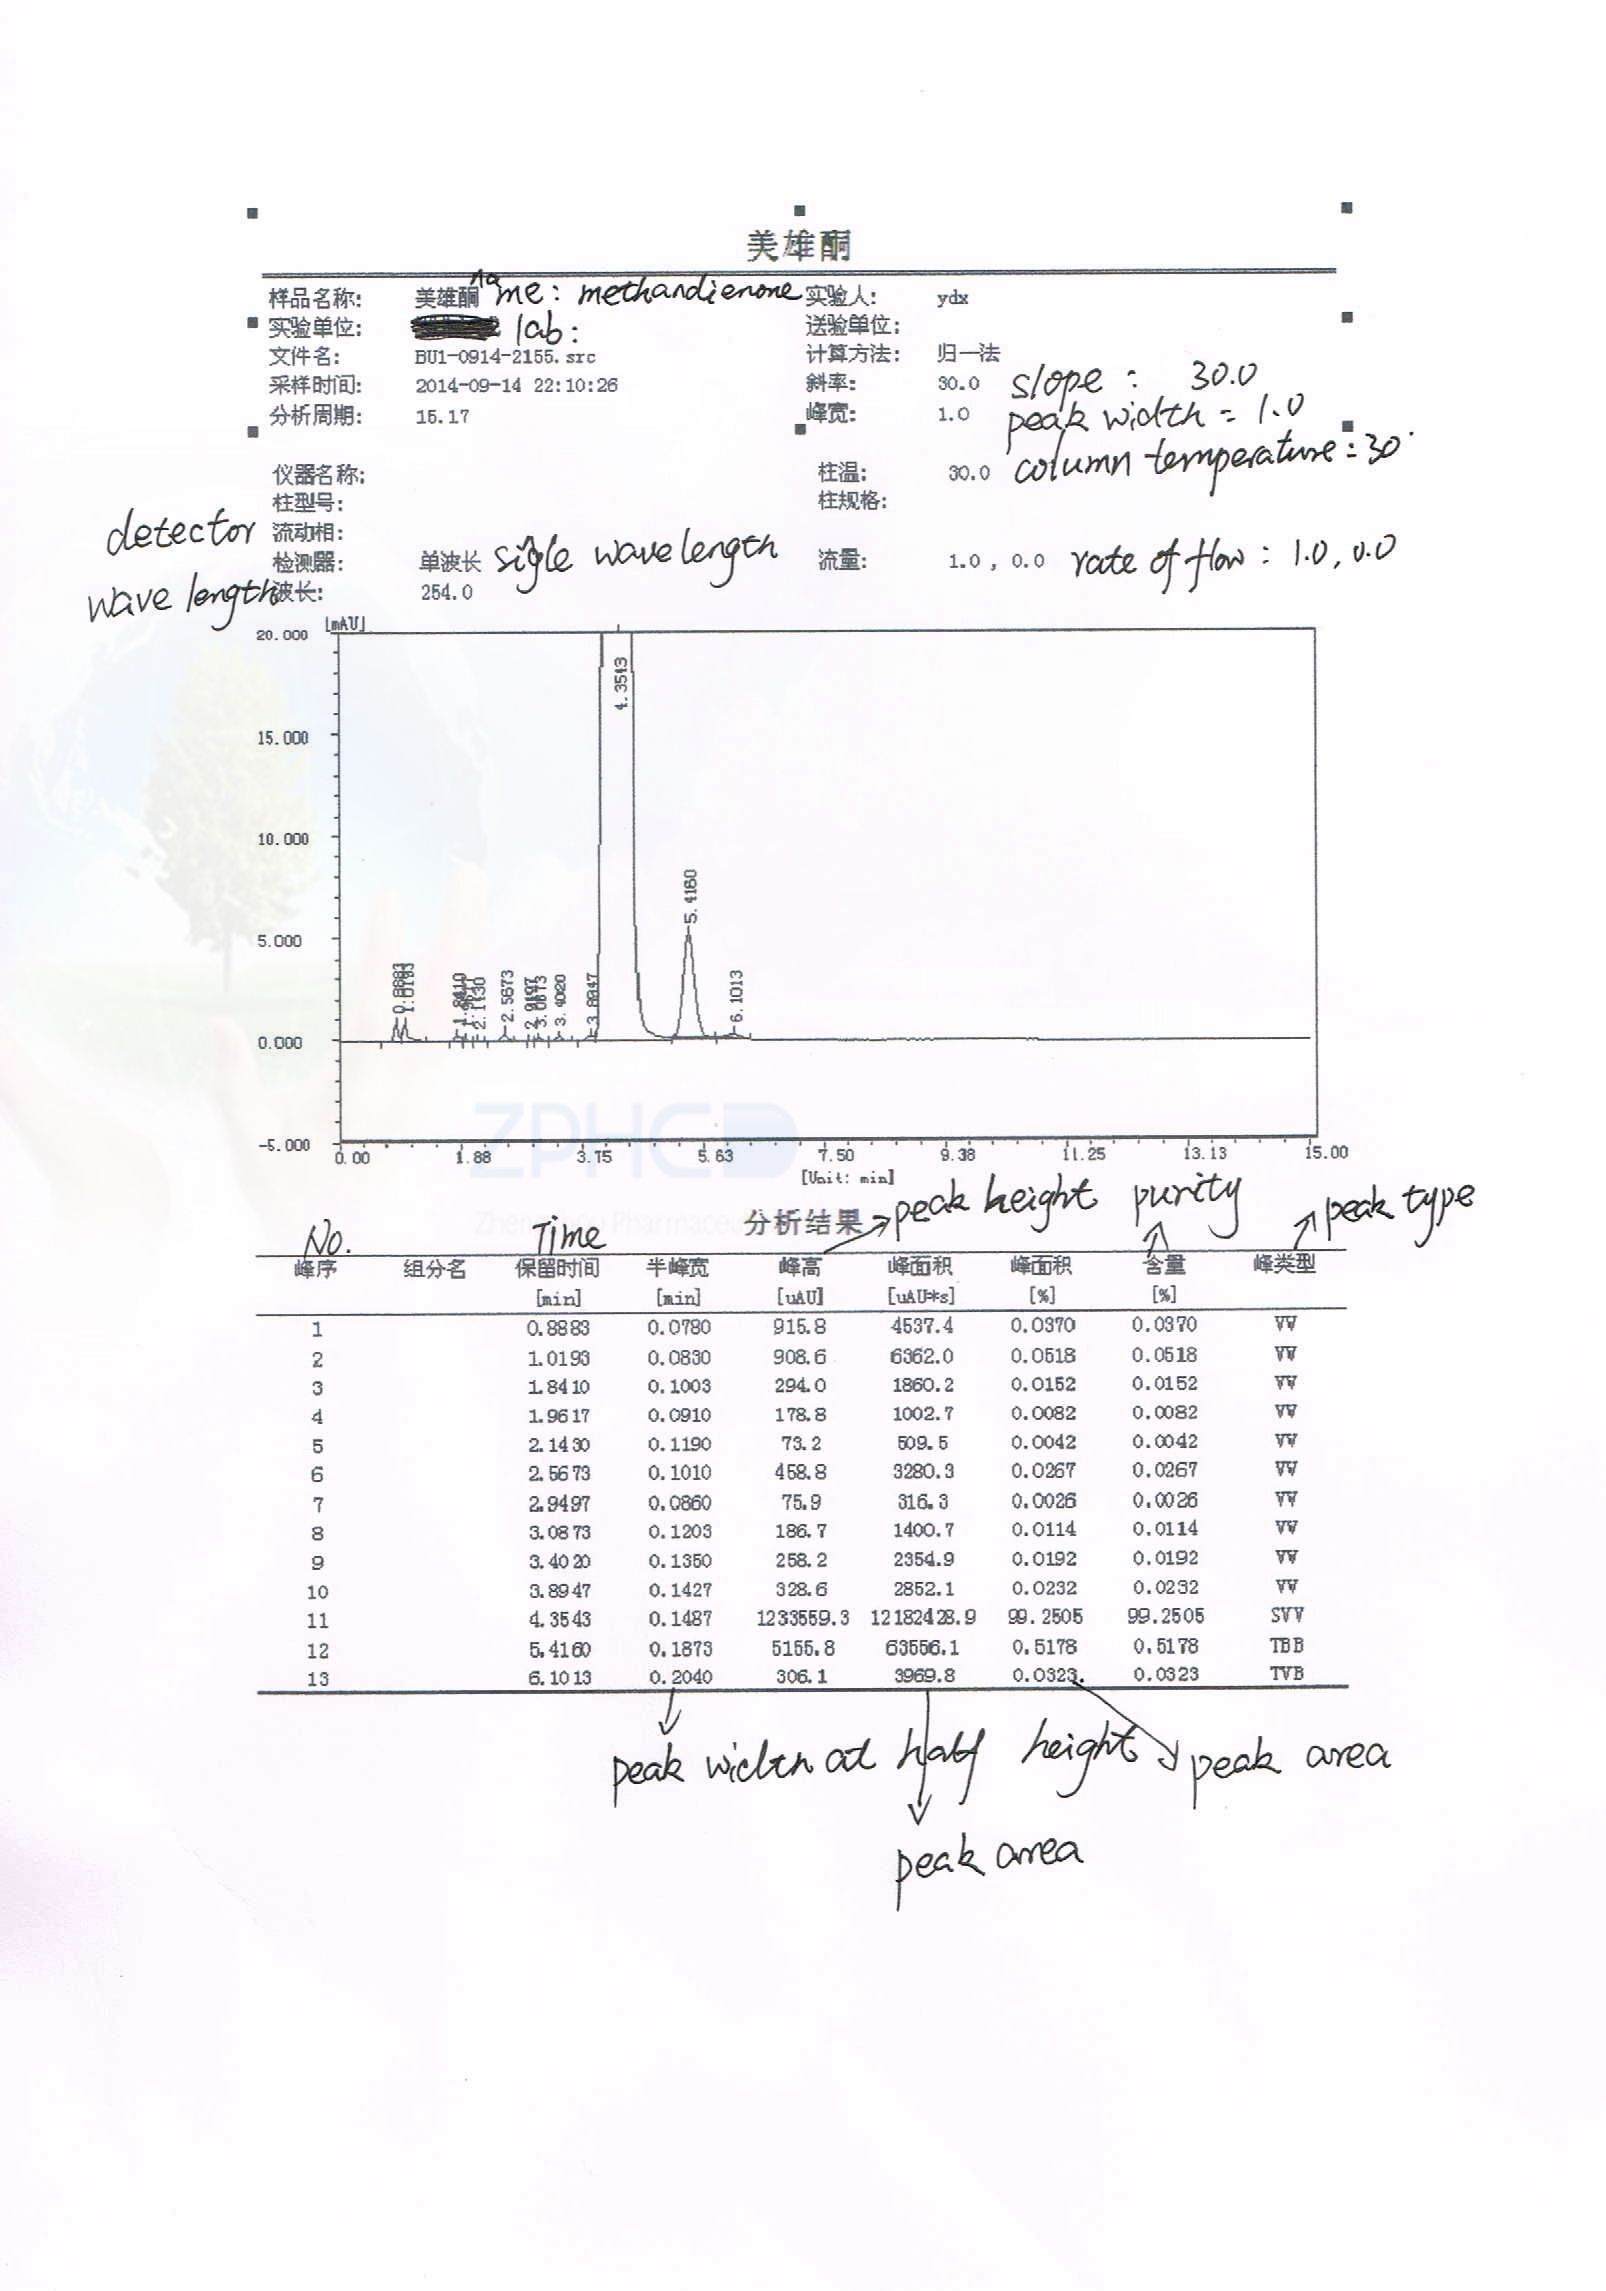 美雄酮
样品名称: 美雄酮 name: methandienone 实验人: ydx
实验单位: lab: 送验单位:
文件名: BU1-0914-2155.src 计算方法: 归一法
采样时间: 2014-09-14 22:10:26 斜率: 30.0 slope: 30.0
分析周期: 15.17 峰宽: 1.0 peak width = 1.0
仪器名称: 柱温: 30.0 column temperature: 30°
柱型号: 柱规格:
detector 流动相:
检测器: 单波长 sigle wave length 流量: 1.0 , 0.0 rate of flow: 1.0, 0.0
wave length 波长: 254.0
[mAU]
20.000
4.3543
15.000
10.000
5.4160
5.000
0.8883 1.0193 1.8410 2.1430 2.5673 2.9497 3.0873 3.4020 3.8947 6.1013
0.000
ZPHC
-5.000
0.00 1.88 3.75 5.63 7.50 9.38 11.25 13.13 15.00
[Unit: min]
分析结果 peak height purity peak type
No. Time
峰序 组分名 保留时间 半峰宽 峰高 峰面积 峰面积 含量 峰类型
[min] [min] [uAU] [uAU*s] [%] [%]
1 0.8883 0.0780 915.8 4537.4 0.0370 0.0370 VV
2 1.0193 0.0830 908.6 6362.0 0.0518 0.0518 VV
3 1.8410 0.1003 294.0 1860.2 0.0152 0.0152 VV
4 1.9617 0.0910 178.8 1002.7 0.0082 0.0082 VV
5 2.1430 0.1190 73.2 509.5 0.0042 0.0042 VV
6 2.5673 0.1010 458.8 3280.3 0.0267 0.0267 VV
7 2.9497 0.0860 75.9 316.3 0.0026 0.0026 VV
8 3.0873 0.1203 186.7 1400.7 0.0114 0.0114 VV
9 3.4020 0.1350 258.2 2354.9 0.0192 0.0192 VV
10 3.8947 0.1427 328.6 2852.1 0.0232 0.0232 VV
11 4.3543 0.1487 1233559.3 12182428.9 99.2505 99.2505 SVV
12 5.4160 0.1873 5155.8 63556.1 0.5178 0.5178 TBB
13 6.1013 0.2040 306.1 3969.8 0.0323 0.0323 TVB
peak width at half height peak area
peak area